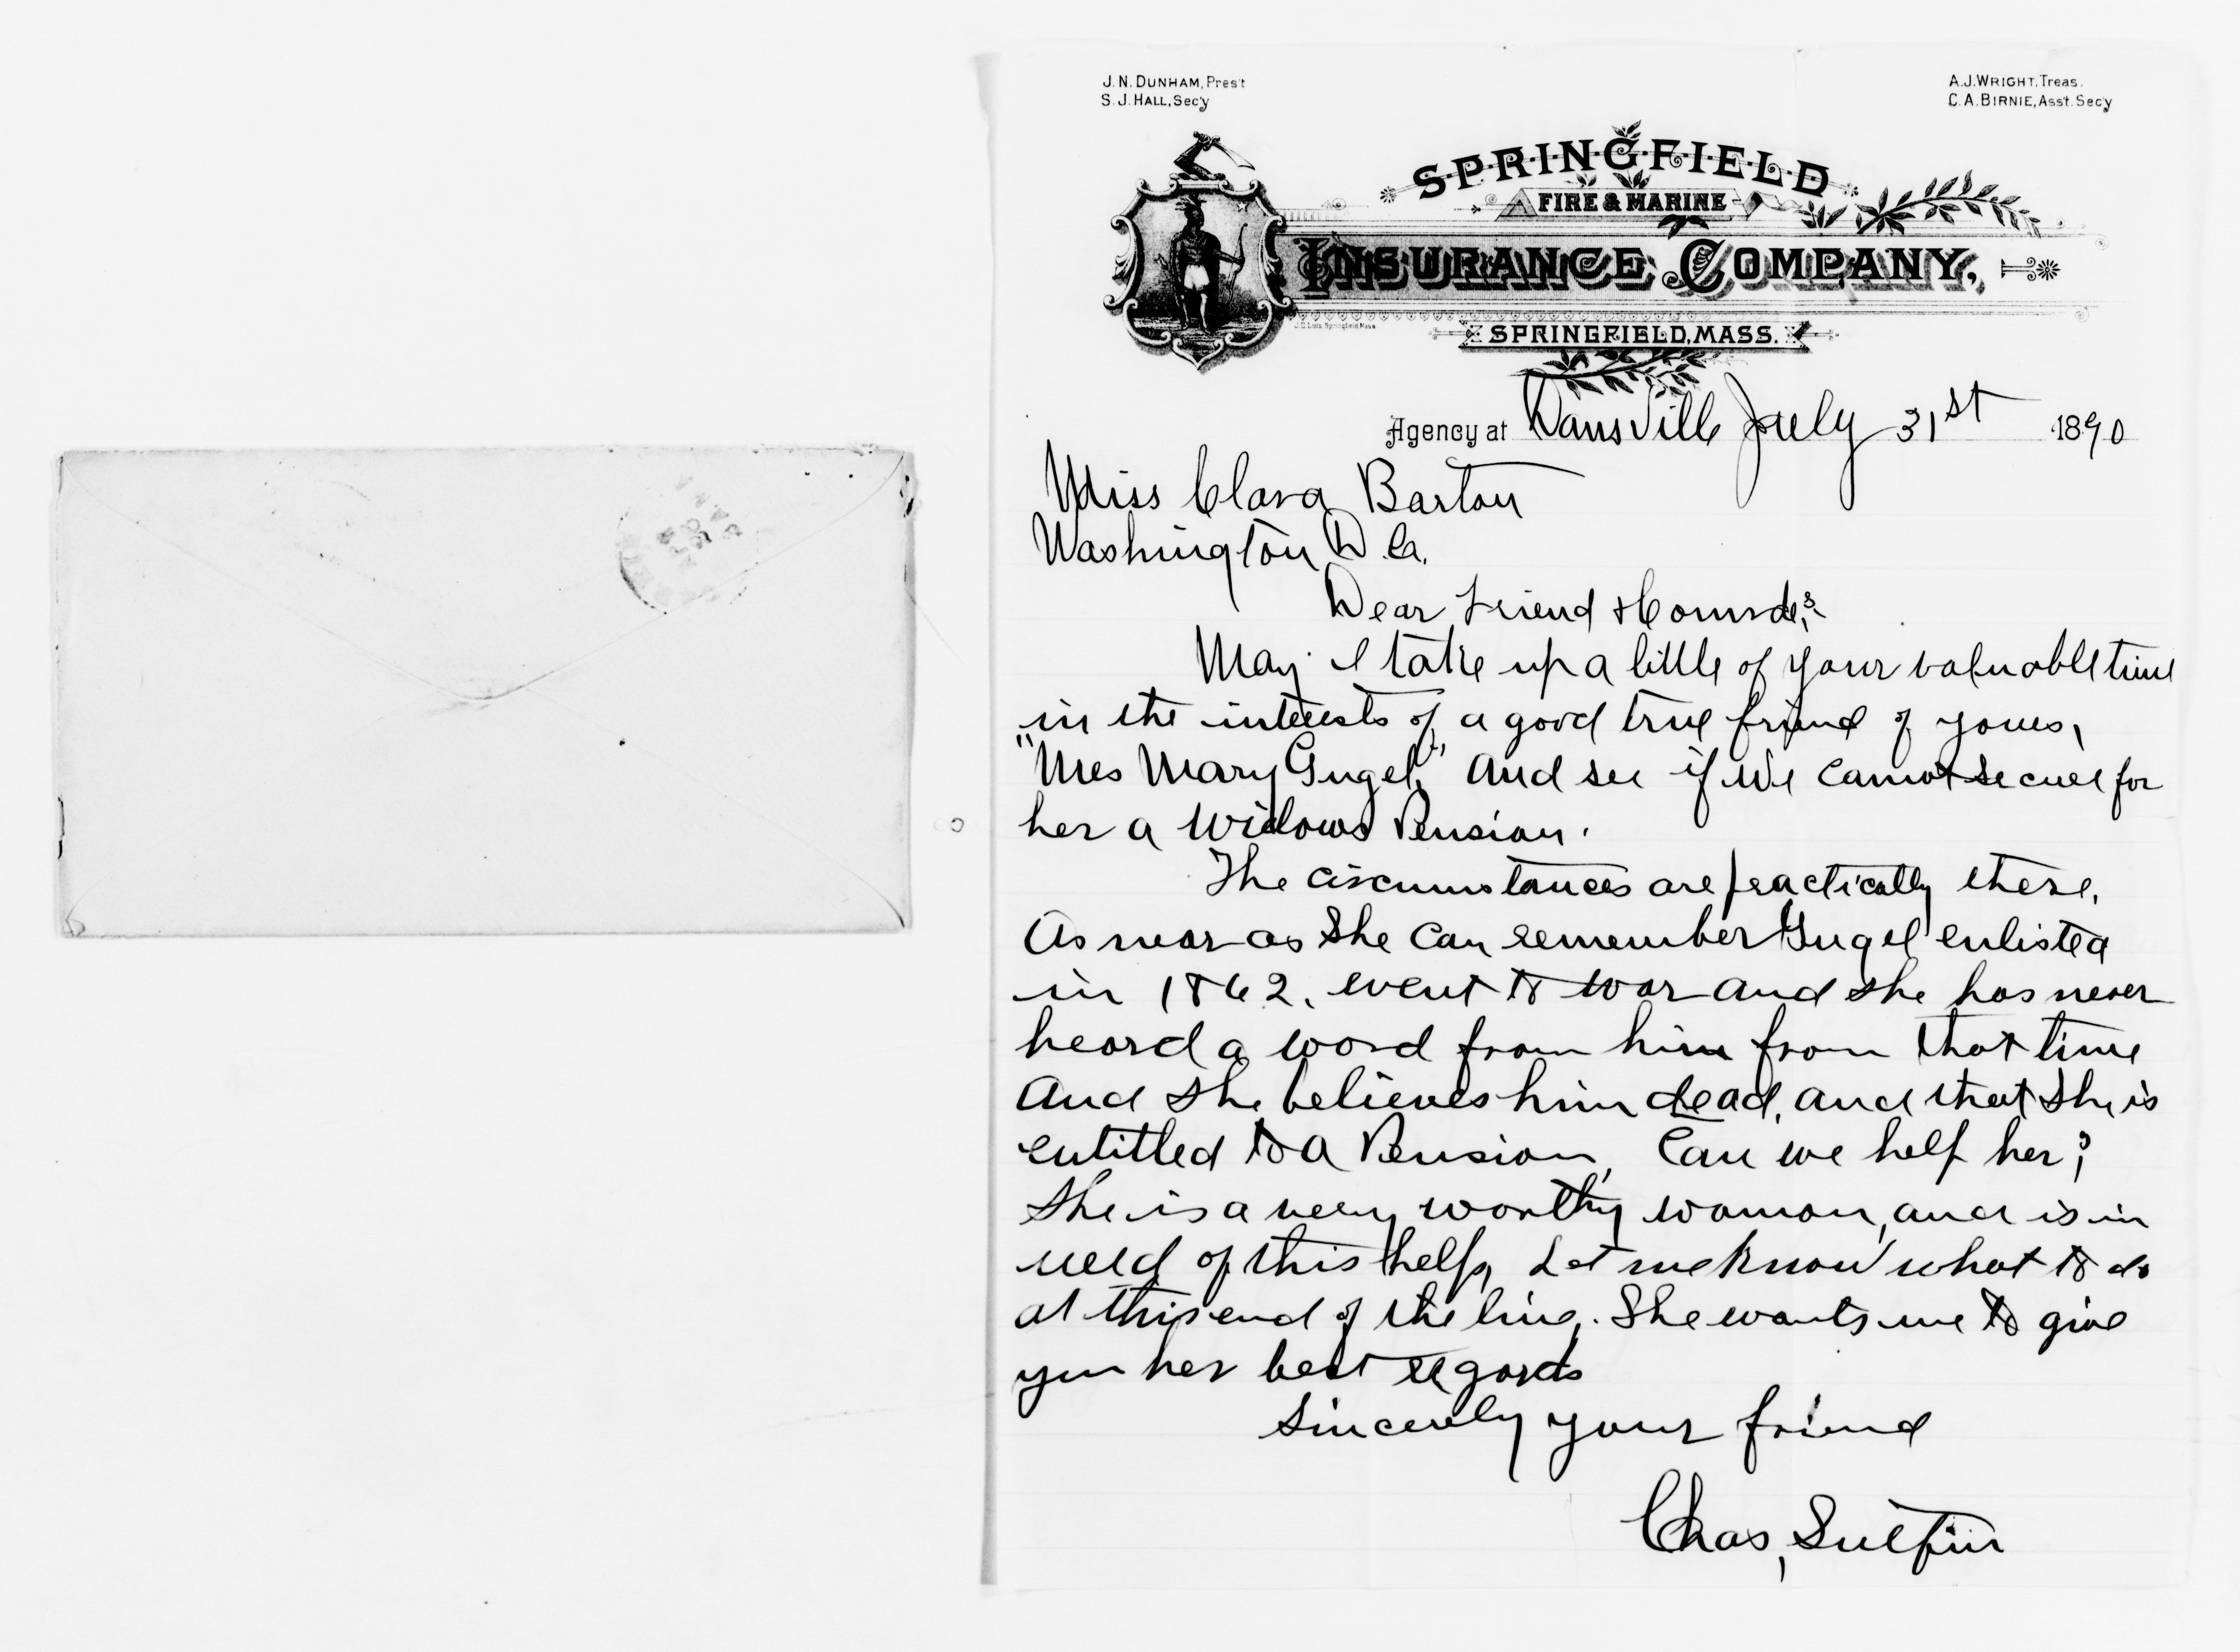 J. N. DUNHAM, Pres't
S. J. HALL, Sec'y
A. J. WRIGHT, Treas.
C. A. BIRNIE, Ass't. Sec'y
SPRINGFIELD
FIRE & MARINE
INSURANCE COMPANY,
SPRINGFIELD, MASS.
Agency at Dansville July 31st 1890
Miss Clara Barton
Washington D.C.
Dear Friend & Comrade;
May I take up a little of your valuable time
in the interests of a good true friend of yours,
"Mrs Mary Gugel," and see if we cannot secure for
her a widows Pension.
The circumstances are practically these.
As near as she can remember Gugel enlisted
in 1862, went to war and she has never
heard a word from him from that time
and she believes him dead, and that she is
entitled to a Pension, Can we help her?
She is a very worthy woman, and is in
need of this help, Let me know what to do
at this end of the line. She wants me to give
you her best regards
Sincerely your friend
Chas, Sutfin